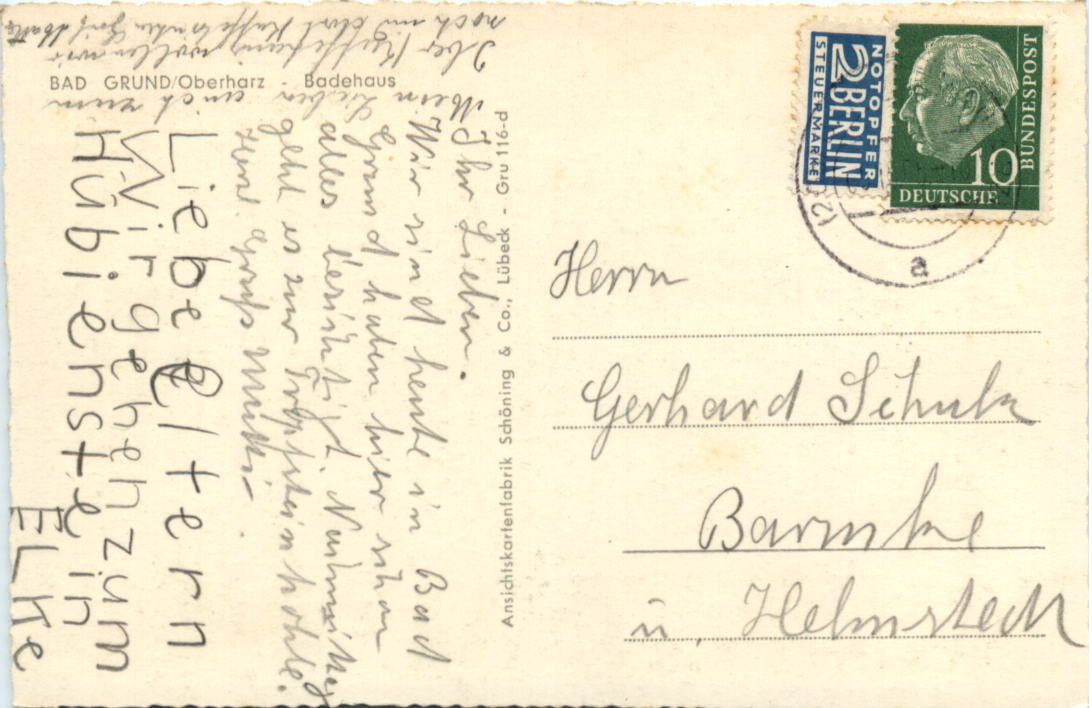 BAD GRUND/Oberharz - Badehaus
Ihr Lieben.
Wir sind heute in Bad
Grund haben hier schon
alles besichtigt. Nachmittag
geht es zur Tropfsteinhöhle.
Herzl. Grüße Mutti
Liebe Eltern
Wir gehen zum
Hübienstein
ELKe
Meinen Lieben auch zum
wollen wir
noch
Ansichtskartenfabrik Schöning & Co., Lübeck - Gru 116-d
NOTOPFER
2 BERLIN
STEUERMARKE
DEUTSCHE
BUNDESPOST
10
a
Herrn
Gerhard Schulz
Barmke
ü. Helmstedt